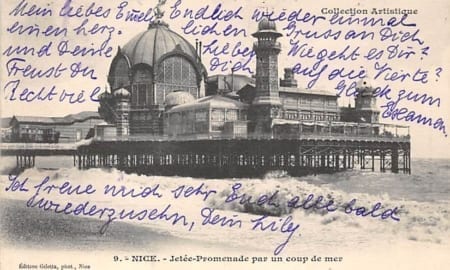 Collection Artistique
Mein liebes Emely Endlich wieder einmal
einen herz. lichen Gruss an Dich
und Deine Lieben. Wie geht es Dir?
Freust Du Dich auf die Vierte?
Recht viel Glück zum
Examen.
Ich freue mich sehr Euch alle bald
wiederzusehn, Dein Lily
9. - NICE. - Jetée-Promenade par un coup de mer
Édition Giletta, phot., Nice